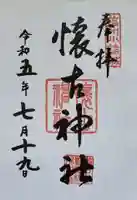 奉拝
懐古神社
令和五年七月十九日